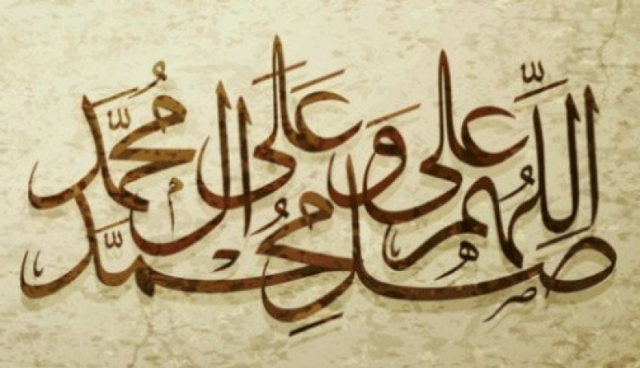 اللّٰهم صل على محمّد وعلى ال محمّد